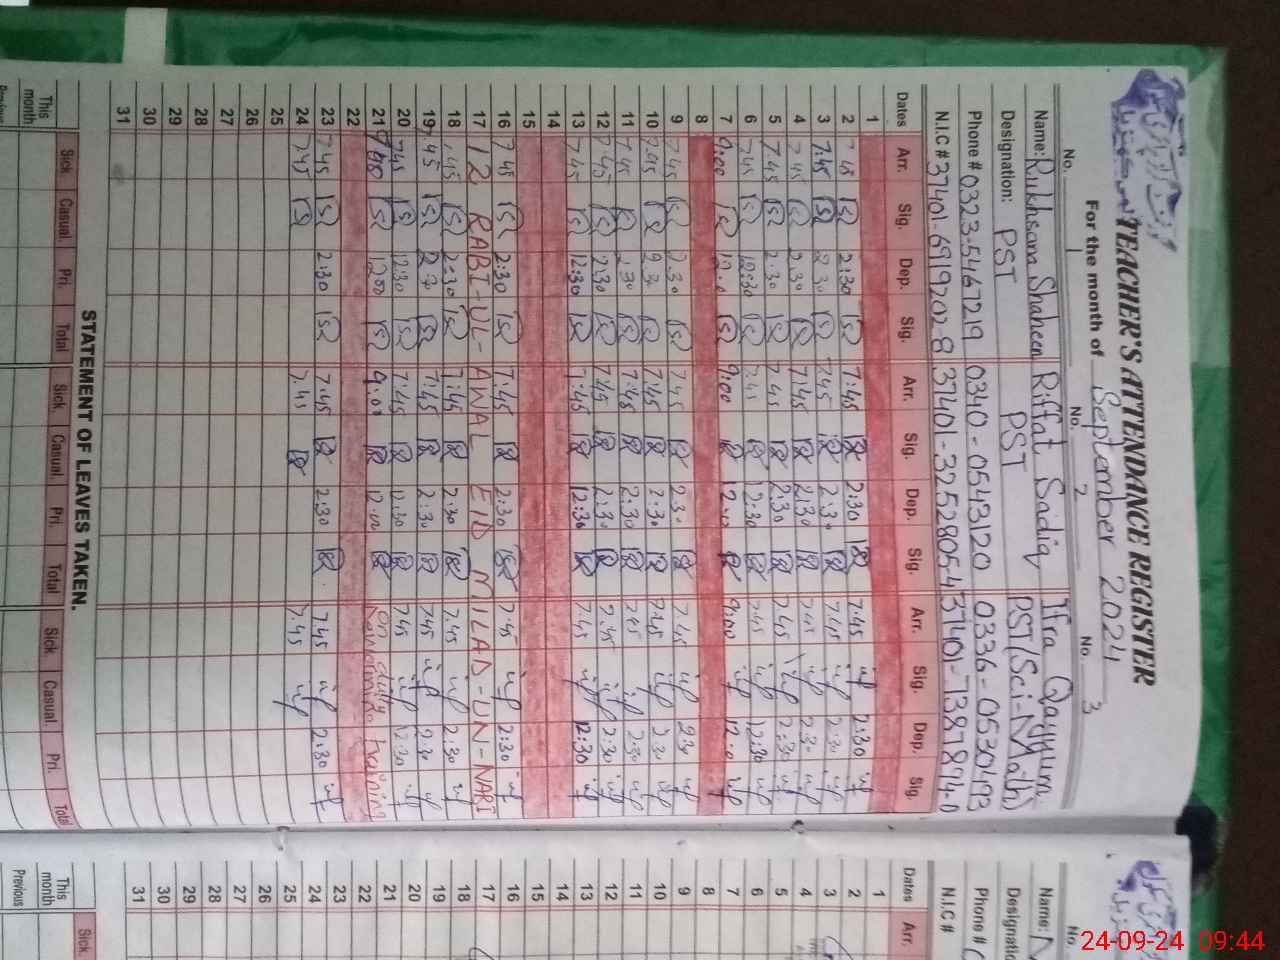 TEACHER'S ATTENDANCE REGISTER
For the month of September 2024
No. 1 No. 2 No. 3
Name: Rukhsana Shaheen Riffat Sadiq Ifra Qayyum
Designation: PST PST PST(Sci-Math)
Phone # 0323-5467219 0340-0543120 0336-0530493
N.I.C # 37401-6919202-8 37401-3252805-4 37401-7387894-0
Dates Arr. Sig. Dep. Sig. Arr. Sig. Dep. Sig. Arr. Sig. Dep. Sig.
1
2 7:45 2:30 7:45 2:30 7:45 2:30
3 7:45 2:30 7:45 2:30 7:45 2:30
4 7:45 2:30 7:45 2:30 7:45 2:30
5 7:45 2:30 7:45 2:30 7:45 2:30
6 7:45 12:30 7:45 12:30 7:45 12:30
7 9:00 12:00 9:00 12:00 9:00 12:00
8
9 7:45 2:30 7:45 2:30 7:45 2:30
10 7:45 2:30 7:45 2:30 7:45 2:30
11 7:45 2:30 7:45 2:30 7:45 2:30
12 7:45 2:30 7:45 2:30 7:45 2:30
13 7:45 12:30 7:45 12:30 7:45 12:30
14
15
16 7:45 2:30 7:45 2:30 7:45 2:30
17 12 RABI-UL-AWAL EID MILAD-UN-NABI
18 7:45 2:30 7:45 2:30 7:45 2:30
19 7:45 2:30 7:45 2:30 7:45 2:30
20 7:45 12:30 7:45 12:30 7:45 12:30
21 12:00 9:00 12:00 on duty Training
22
23 7:45 2:30 7:45 2:30 7:45 2:30
24 7:45 7:45 7:45
25
26
27
28
29
30
31
STATEMENT OF LEAVES TAKEN.
Sick Casual. Pri. Total Sick. Casual. Pri. Total Sick. Casual. Pri. Total
This month
Previous
No.
Name:
Designati
Phone #
N.I.C #
Dates Arr.
1
2
3
4
5
6
7
8
9
10
11
12
13
14
15
16
17
18
19
20
21
22
23
24
25
26
27
28
29
30
31
Sick.
This month
Previous
24-09-24 09:44